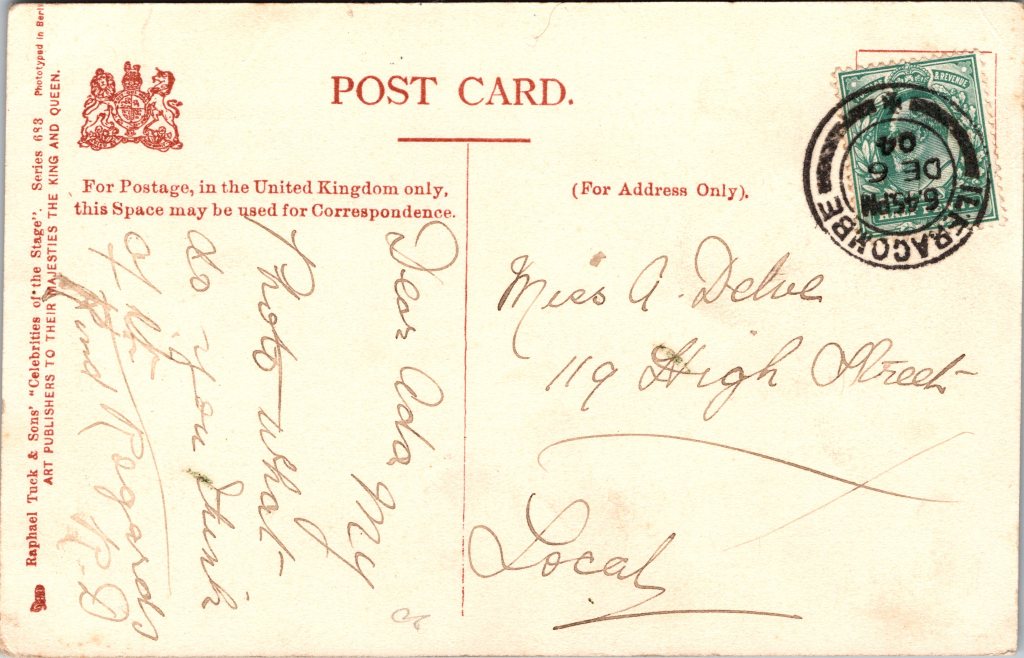 POST CARD.
For Postage, in the United Kingdom only,
this Space may be used for Correspondence.
(For Address Only).
& REVENUE
ILFRACOMBE
6.45PM
DE 6
04
Miss A. Delve
119 High Street
Local
Dear Ada My
Photo what
do you think
of it
Kind Regards
R.D
Raphael Tuck & Sons' "Celebrities of the Stage". Series 683 Phototyped in Berlin
ART PUBLISHERS TO THEIR MAJESTIES THE KING AND QUEEN.